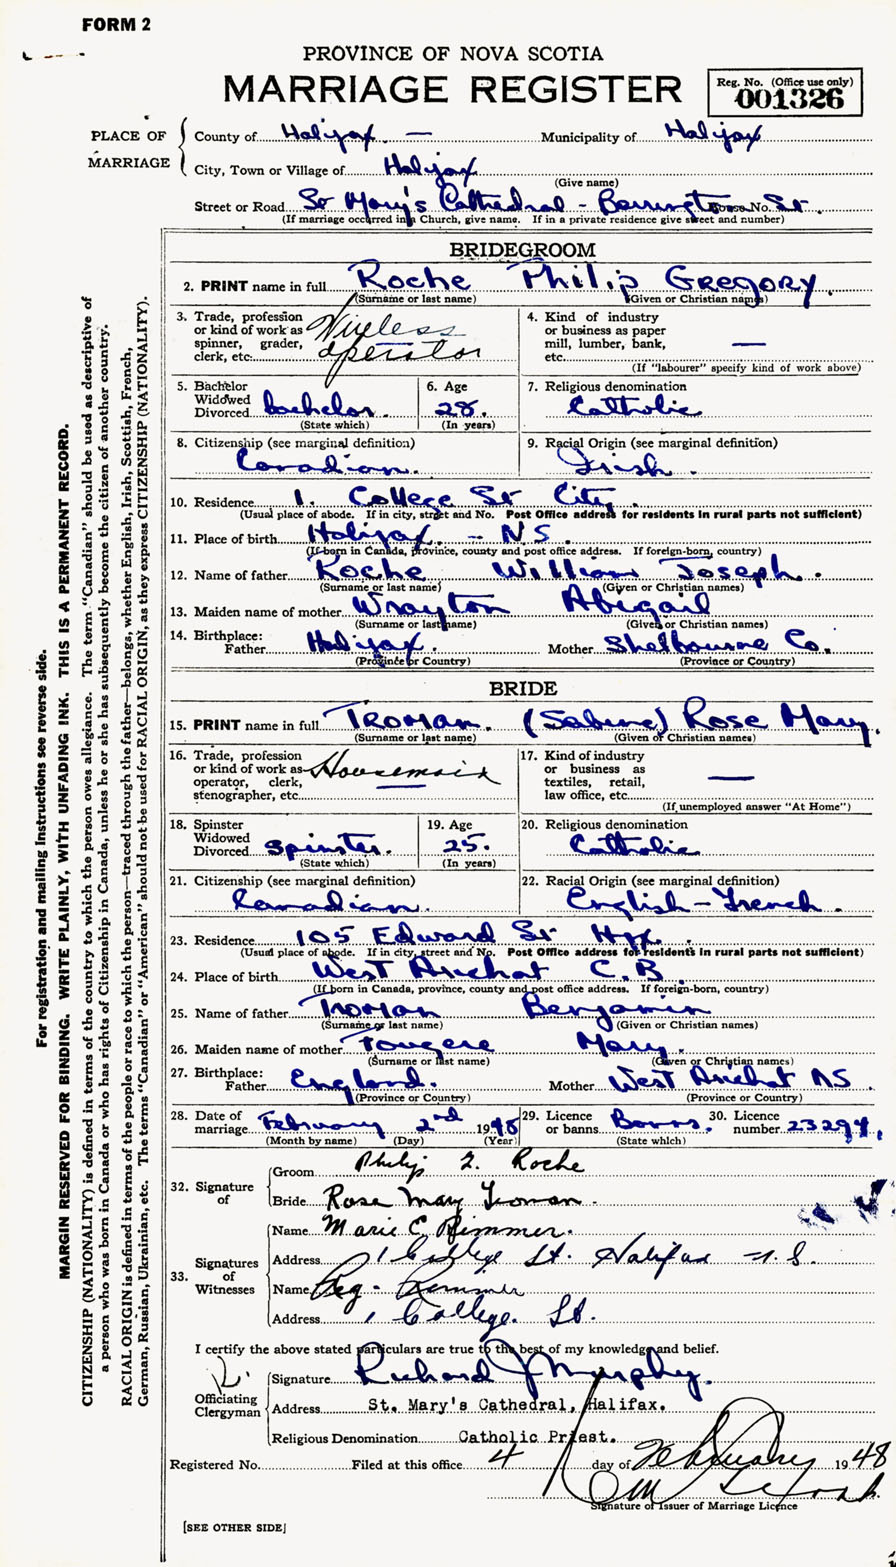 FORM 2
PROVINCE OF NOVA SCOTIA
MARRIAGE REGISTER
Reg. No. (Office use only)
001326
PLACE OF MARRIAGE
County of Halifax. — Municipality of Halifax
City, Town or Village of Halifax
(Give name)
Street or Road St Mary's Cathedral - Barrington House No. St.
(If marriage occurred in a Church, give name. If in a private residence give street and number)
BRIDEGROOM
2. PRINT name in full Roche Philip Gregory.
(Surname or last name) (Given or Christian names)
3. Trade, profession or kind of work as spinner, grader, clerk, etc. Wireless operator
4. Kind of industry or business as paper mill, lumber, bank, etc. —
(If "labourer" specify kind of work above)
5. Bachelor Widowed Divorced bachelor.
(State which)
6. Age 28.
(In years)
7. Religious denomination Catholic
8. Citizenship (see marginal definition)
Canadian.
9. Racial Origin (see marginal definition)
Irish.
10. Residence 1. College St City.
(Usual place of abode. If in city, street and No. Post Office address for residents in rural parts not sufficient)
11. Place of birth Halifax. - N S.
(If born in Canada, province, county and post office address. If foreign-born, country)
12. Name of father Roche William Joseph.
(Surname or last name) (Given or Christian names)
13. Maiden name of mother Wrayton Abigail
(Surname or last name) (Given or Christian names)
14. Birthplace:
Father Halifax. Mother Shelbourne Co.
(Province or Country) (Province or Country)
BRIDE
15. PRINT name in full Troman. (Sabine) Rose Mary.
(Surname or last name) (Given or Christian names)
16. Trade, profession or kind of work as operator, clerk, stenographer, etc. Housemaid
17. Kind of industry or business as textiles, retail, law office, etc. —
(If unemployed answer "At Home")
18. Spinster Widowed Divorced spinster.
(State which)
19. Age 25.
(In years)
20. Religious denomination Catholic
21. Citizenship (see marginal definition)
Canadian.
22. Racial Origin (see marginal definition)
English-French.
23. Residence 105 Edward St Hfx.
(Usual place of abode. If in city, street and No. Post Office address for residents in rural parts not sufficient)
24. Place of birth West Arichat C.B
(If born in Canada, province, county and post office address. If foreign-born, country)
25. Name of father Troman Benjamin
(Surname or last name) (Given or Christian names)
26. Maiden name of mother Fougere Mary.
(Surname or last name) (Given or Christian names)
27. Birthplace:
Father England. Mother West Arichat NS.
(Province or Country) (Province or Country)
28. Date of marriage February 2nd 1948
(Month by name) (Day) (Year)
29. Licence or banns Banns.
(State which)
30. Licence number 23294.
32. Signature of
Groom Philip G. Roche
Bride Rose Mary Troman.
33. Signatures of Witnesses
Name Marie C Rimmer.
Address 1 College St. Halifax N.S.
Name Reg. Rimmer
Address 1 College. St.
I certify the above stated particulars are true to the best of my knowledge and belief.
Officiating Clergyman
Signature Richard J Murphy.
Address St. Mary's Cathedral, Halifax.
Religious Denomination Catholic Priest.
Registered No. Filed at this office 4 day of February 1948
Signature of Issuer of Marriage Licence
[SEE OTHER SIDE]
For registration and mailing instructions see reverse side.
MARGIN RESERVED FOR BINDING. WRITE PLAINLY, WITH UNFADING INK. THIS IS A PERMANENT RECORD.
CITIZENSHIP (NATIONALITY) is defined in terms of the country to which the person owes allegiance. The term "Canadian" should be used as descriptive of
a person who was born in Canada or who has rights of Citizenship in Canada, unless he or she has subsequently become the citizen of another country.
RACIAL ORIGIN is defined in terms of the people or race to which the person—traced through the father—belongs, whether English, Irish, Scottish, French,
German, Russian, Ukrainian, etc. The terms "Canadian" or "American" should not be used for RACIAL ORIGIN, as they express CITIZENSHIP (NATIONALITY).